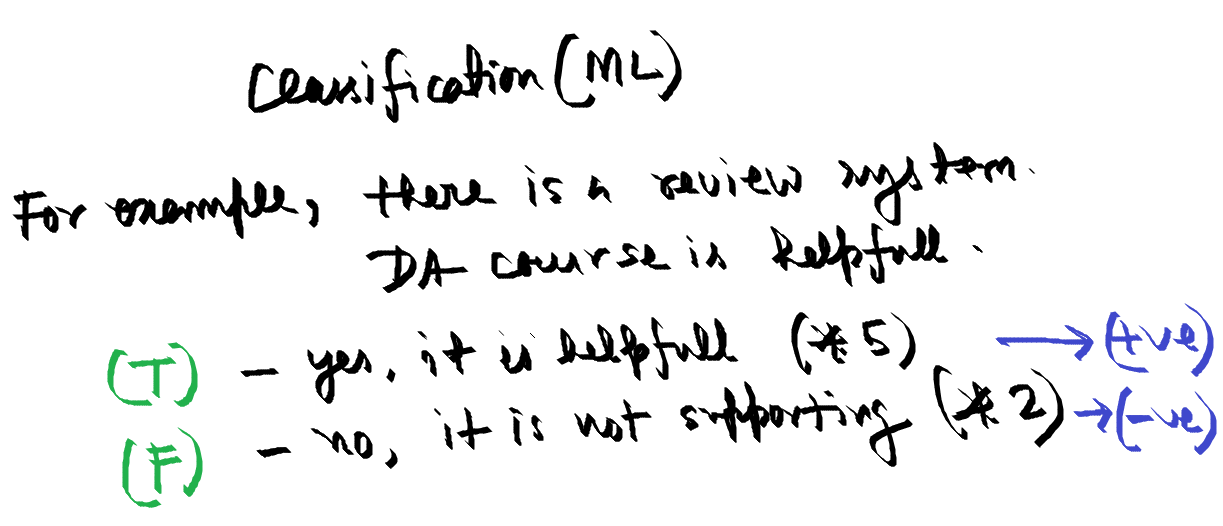 Classification (ML)
For example, there is a review system.
DA course is helpfull.
(T) - yes, it is helpfull (*5) → (+ve)
(F) - no, it is not supporting (*2) → (-ve)